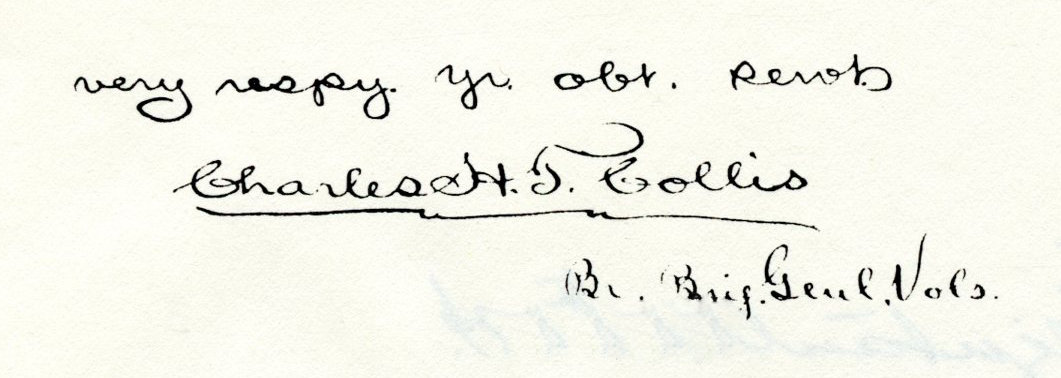 very respy. yr. obt. servt
Charles H. T. Collis
Br. Brig. Genl. Vols.